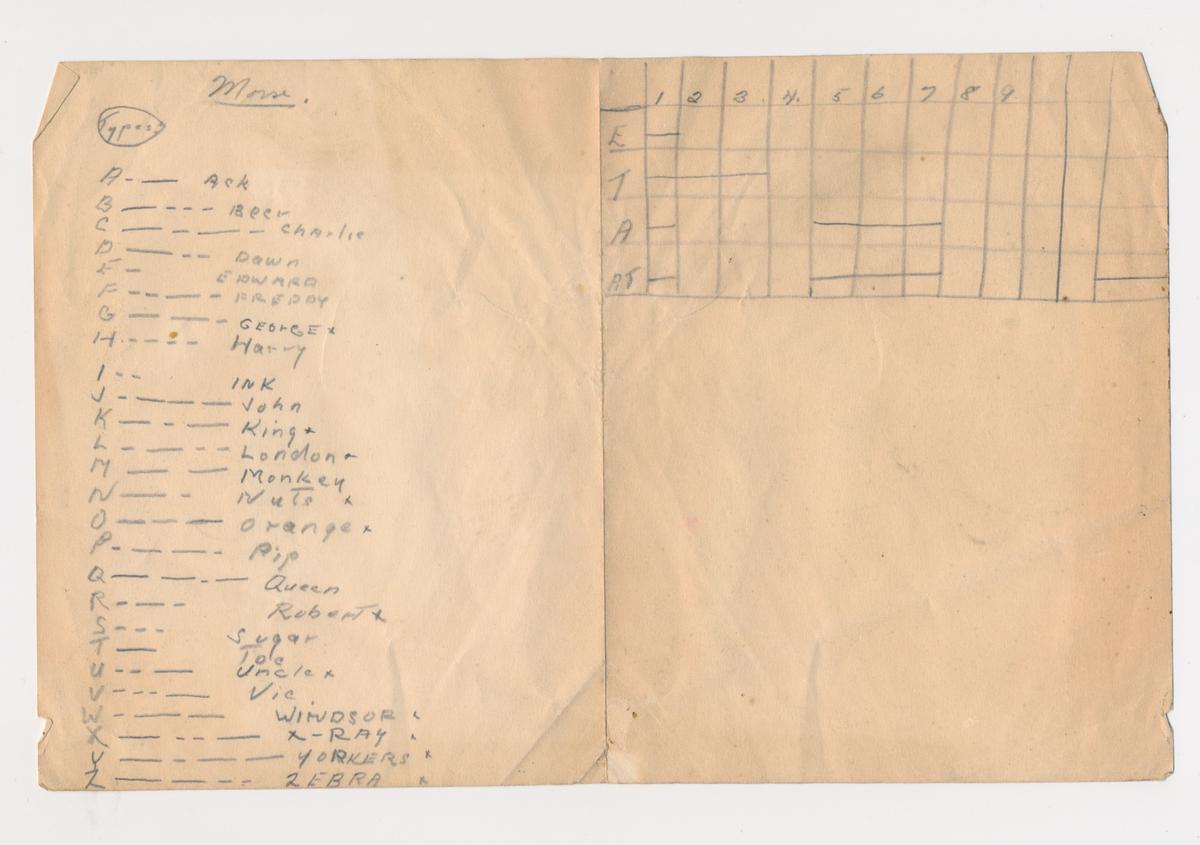 Morse.
Types
A - — Ack
B — - - - Beer
C — - — - Charlie
D — - - Dawn
E - EDWARD
F - - — - FREDDY
G — — - GEOrGE x
H - - - - Harry
I - - INK
J - — — — John
K — - — King x
L - — - - London x
M — — Monkey
N — - Nuts x
O — — — Orange x
P - — — - Pip
Q — — - — Queen
R - — - Robert x
S - - - Sugar
T — Toc
U - - — Uncle x
V - - - — Vic
W - — — WINDSOR x
X — - - — X-RAY x
Y — - — — YORKERS x
Z — — - - ZEBRA x
1 2 3. 4. 5 6 7 8 9
E
T
A
AT